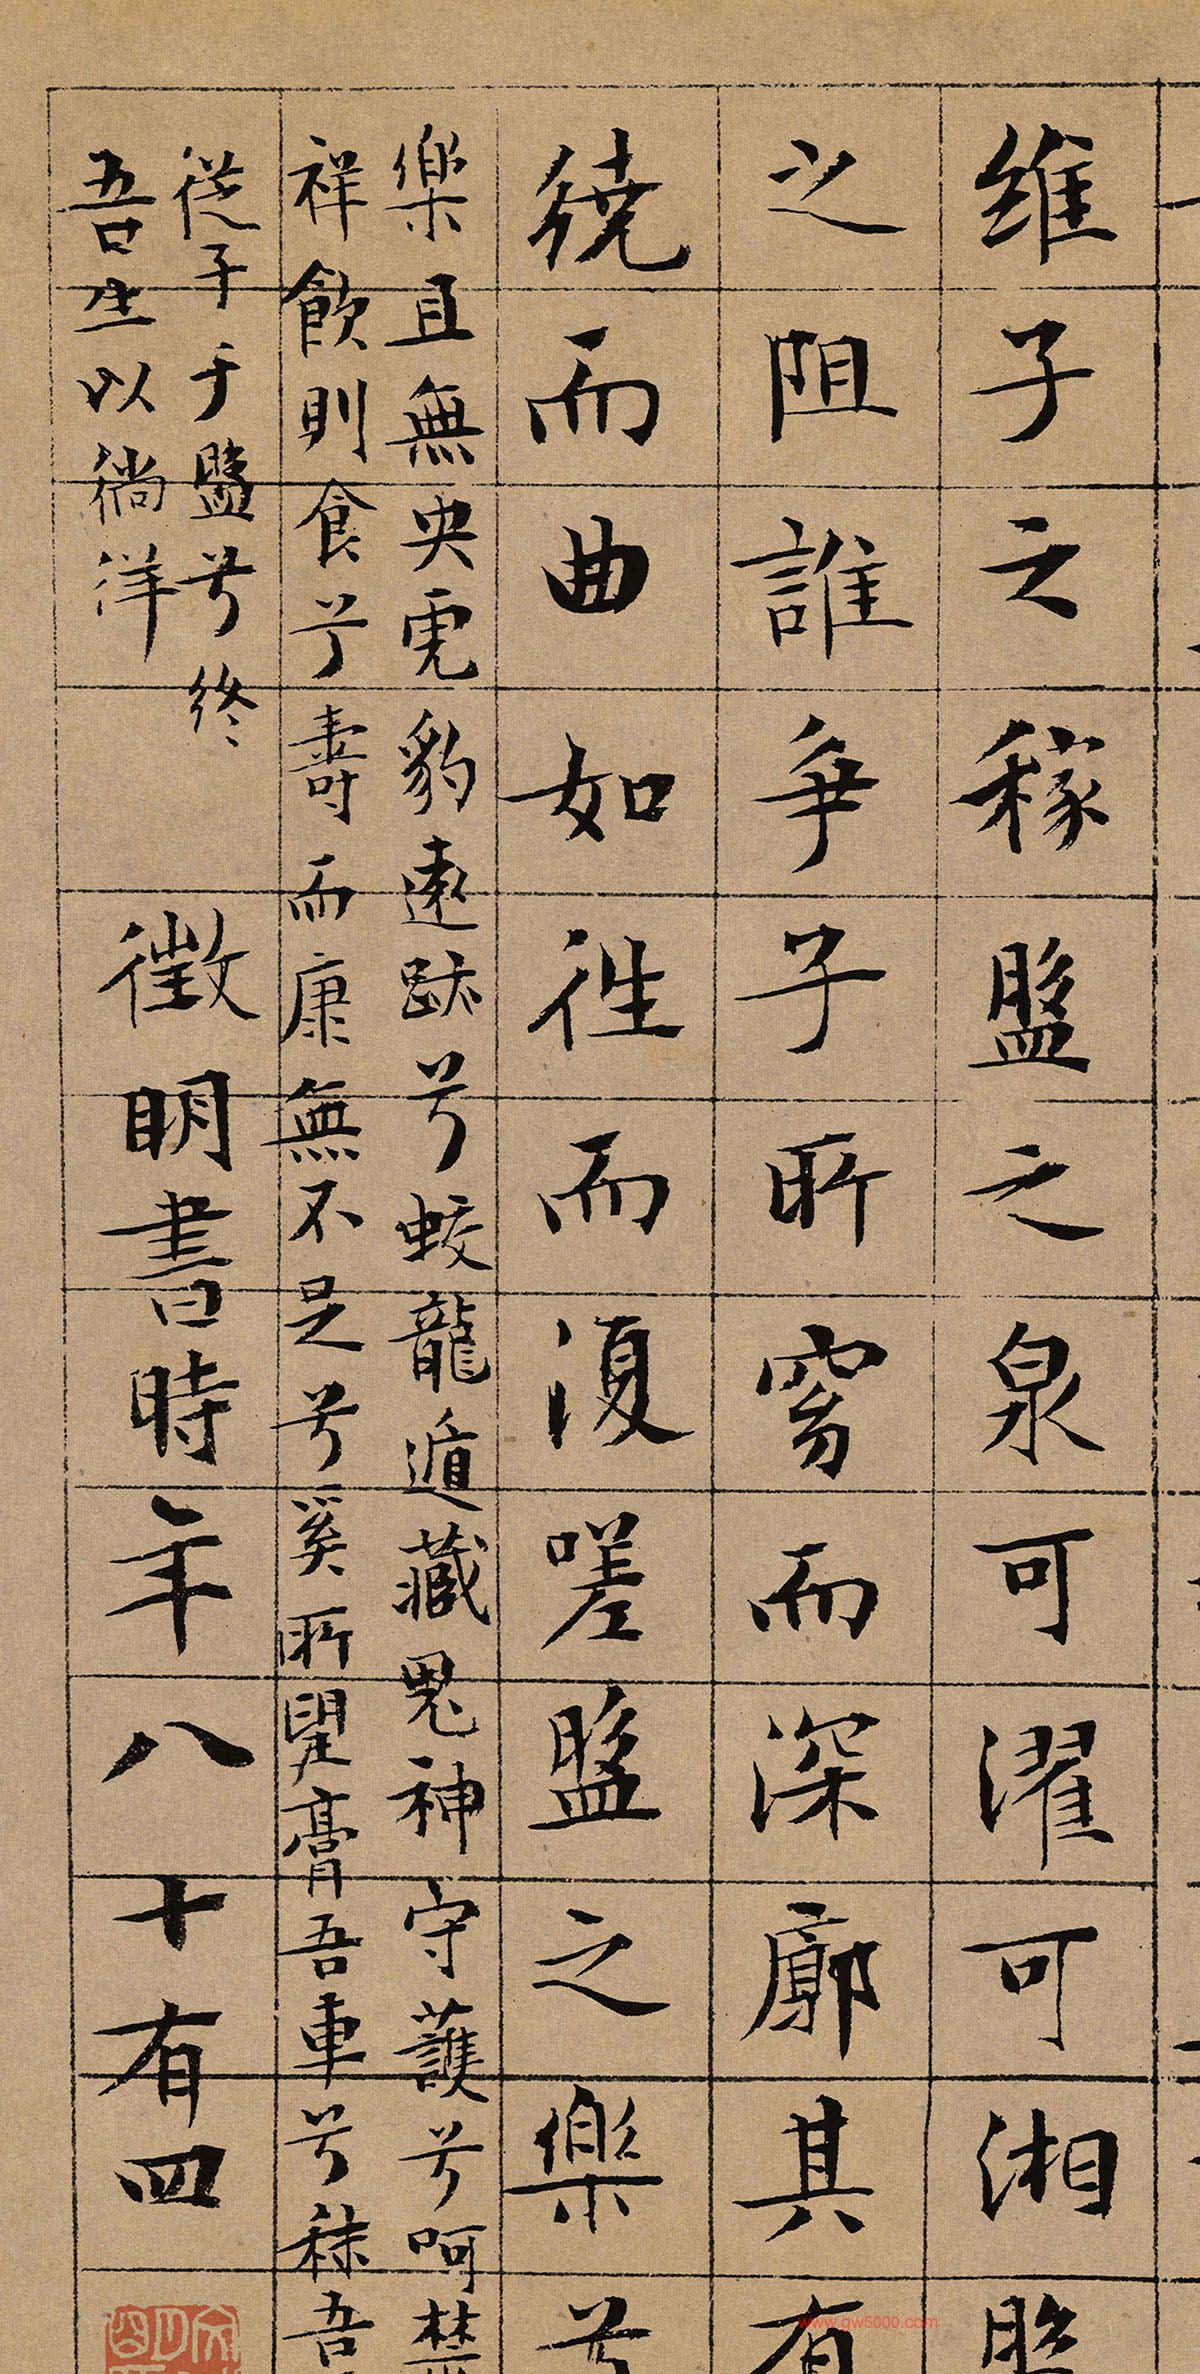 維子之稼盤之泉可濯可湘盤
之阻誰爭子所窈而深廓其有
繞而曲如往而復嗟盤之樂兮
樂且無央虎豹遠跡兮蛟龍遁藏鬼神守護兮呵禁
祥飲則食兮壽而康無不足兮奚所望膏吾車兮秣吾
從子于盤兮終
吾生以徜徉
徵明書時年八十有四
www.gw5000.com